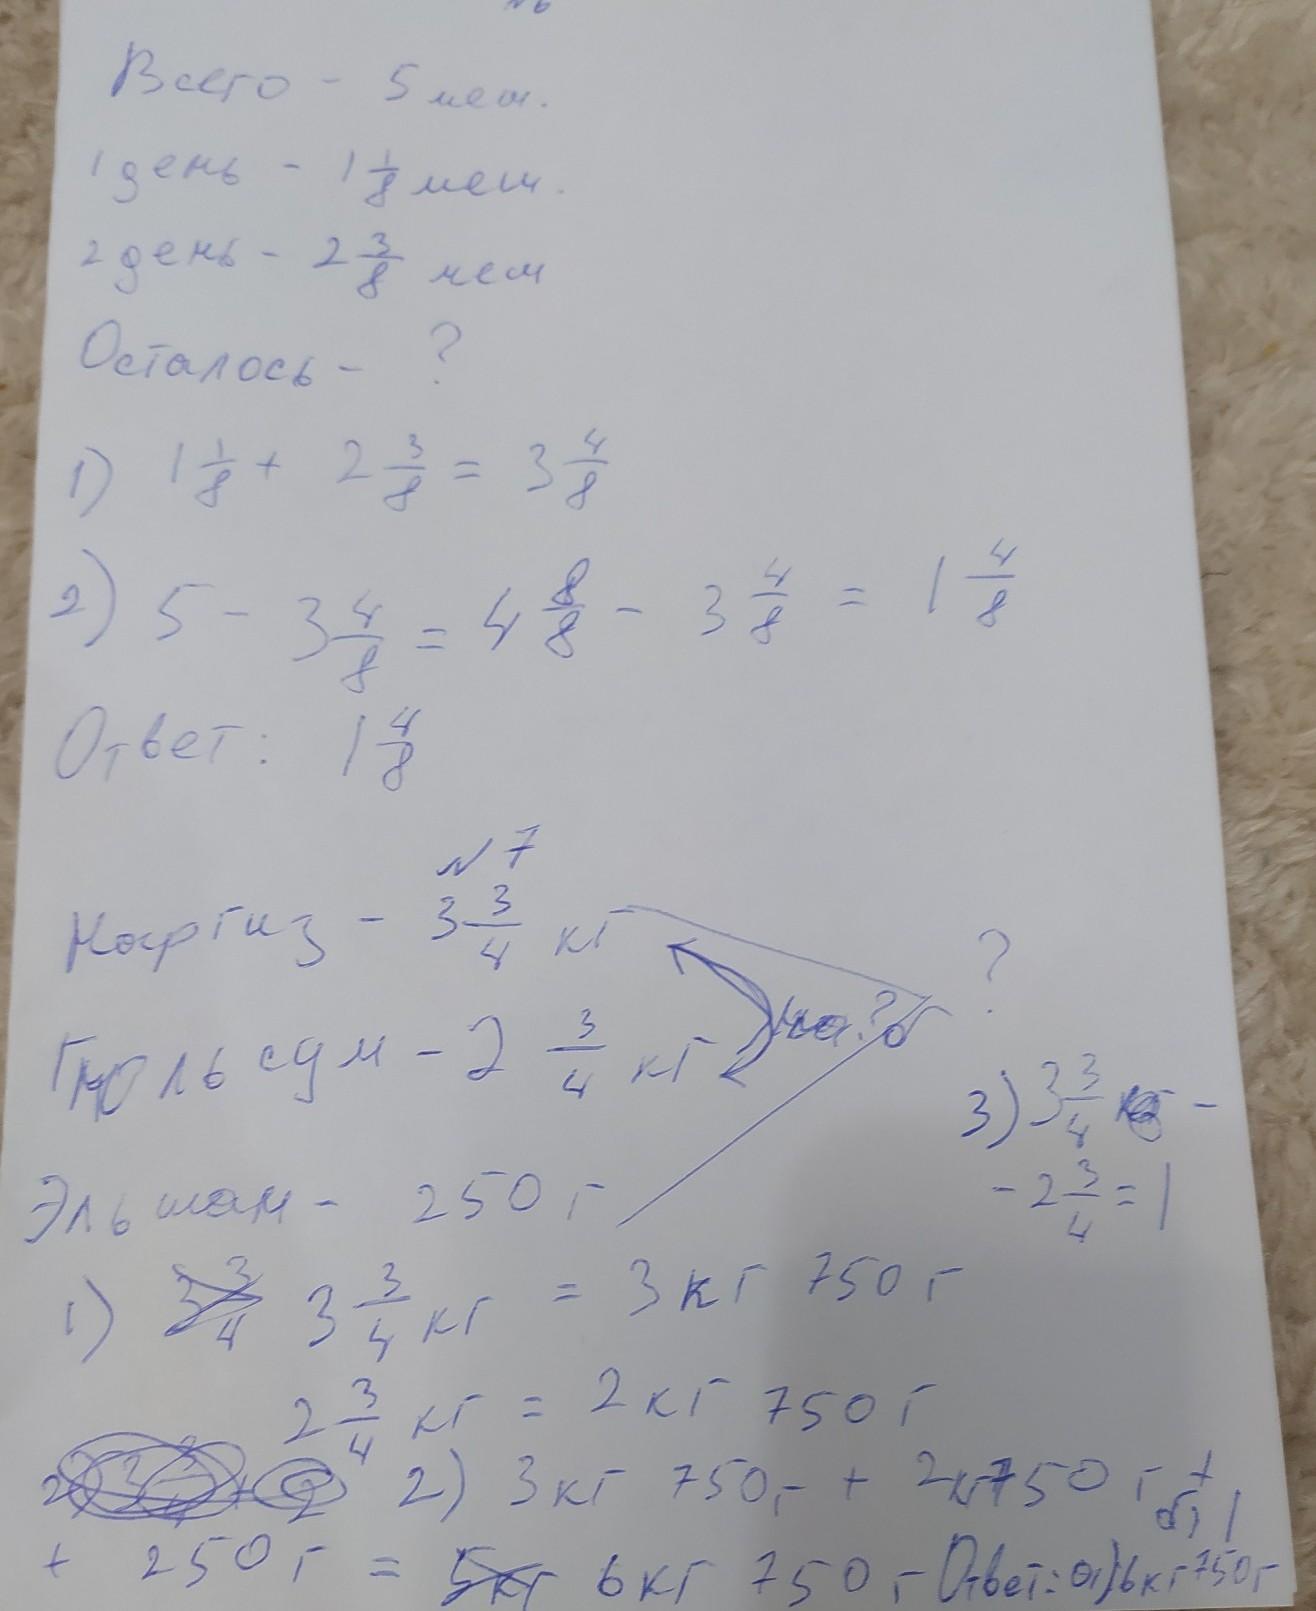 №6
Всего - 5 меш.
1 день - 1 1/8 меш.
2 день - 2 3/8 меш
Осталось - ?
1) 1 1/8 + 2 3/8 = 3 4/8
2) 5 - 3 4/8 = 4 8/8 - 3 4/8 = 1 4/8
Ответ: 1 4/8
№7
Наргиз - 3 3/4 кг
?
на ?б
Гюльсум - 2 3/4 кг
Эльшан - 250 г
3) 3 3/4 -
- 2 3/4 = 1
1) 3 3/4 3 3/4 кг = 3 кг 750 г
2 3/4 кг = 2 кг 750 г
2) 3 кг 750 г + 2 кг 750 г +
+ 250 г = 5 кг 6 кг 750 г Ответ: а) 6 кг 750 г
б) 1